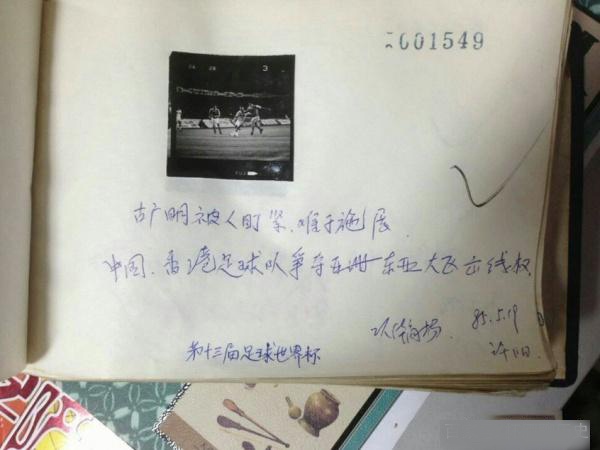 001549
3
古广明被人盯紧、难于施展.
中国、香港足球队争夺亚洲东亚大区出线权
85.5.19
第十三届足球世界杯